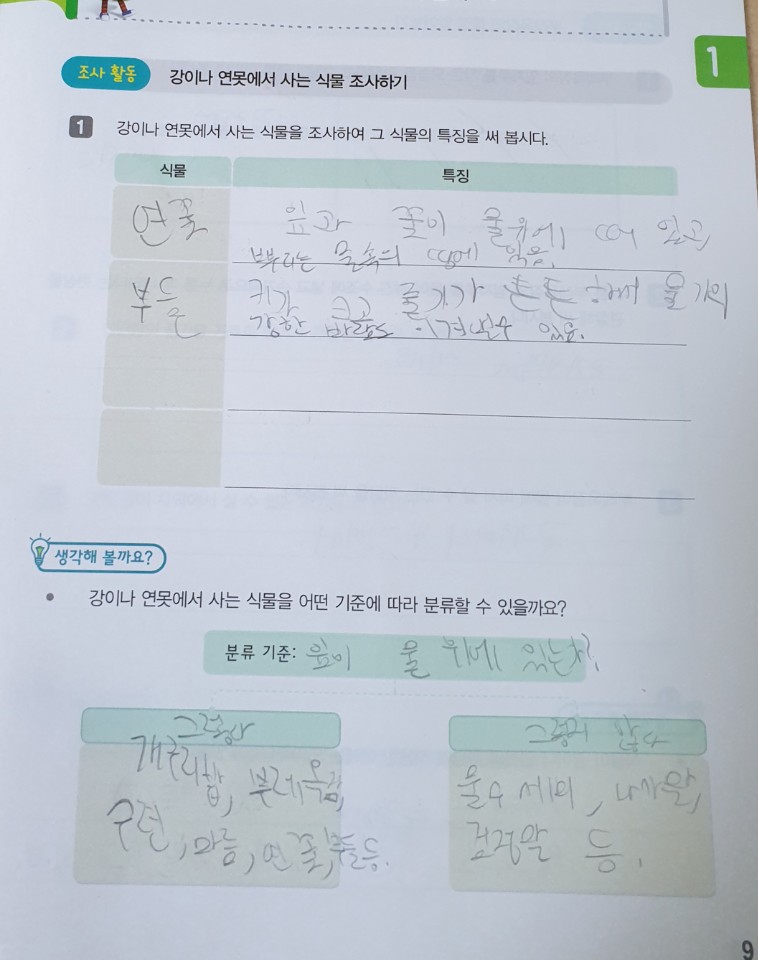 1
조사 활동
강이나 연못에서 사는 식물 조사하기
1 강이나 연못에서 사는 식물을 조사하여 그 식물의 특징을 써 봅시다.
식물 특징
연꽃 잎과 꽃이 물위에 떠 있고,
뿌리는 물속의 땅에 있음.
부들 키가 크고 줄기가 튼튼해서 물가의
강한 바람도 이겨낼수 있음.
생각해 볼까요?
• 강이나 연못에서 사는 식물을 어떤 기준에 따라 분류할 수 있을까요?
분류 기준: 잎이 물 위에 있는가?
그렇다 그렇지 않다
개구리밥, 부레옥잠,
수련, 마름, 연꽃, 부들 등.
물수세미, 나사말,
검정말 등.
9